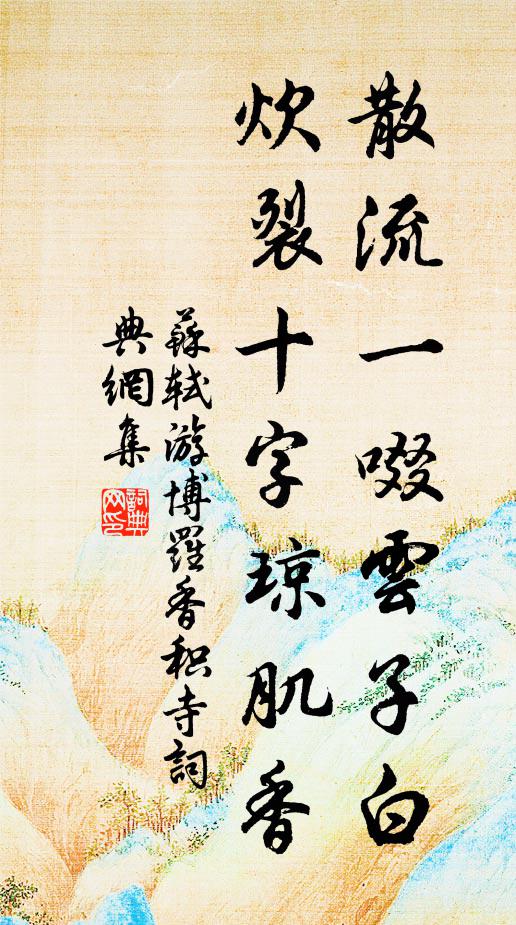 散流一啜雲子白
炊裂十字琼肌香
蘇軾游博羅香积寺詞
典網集
詞典网印